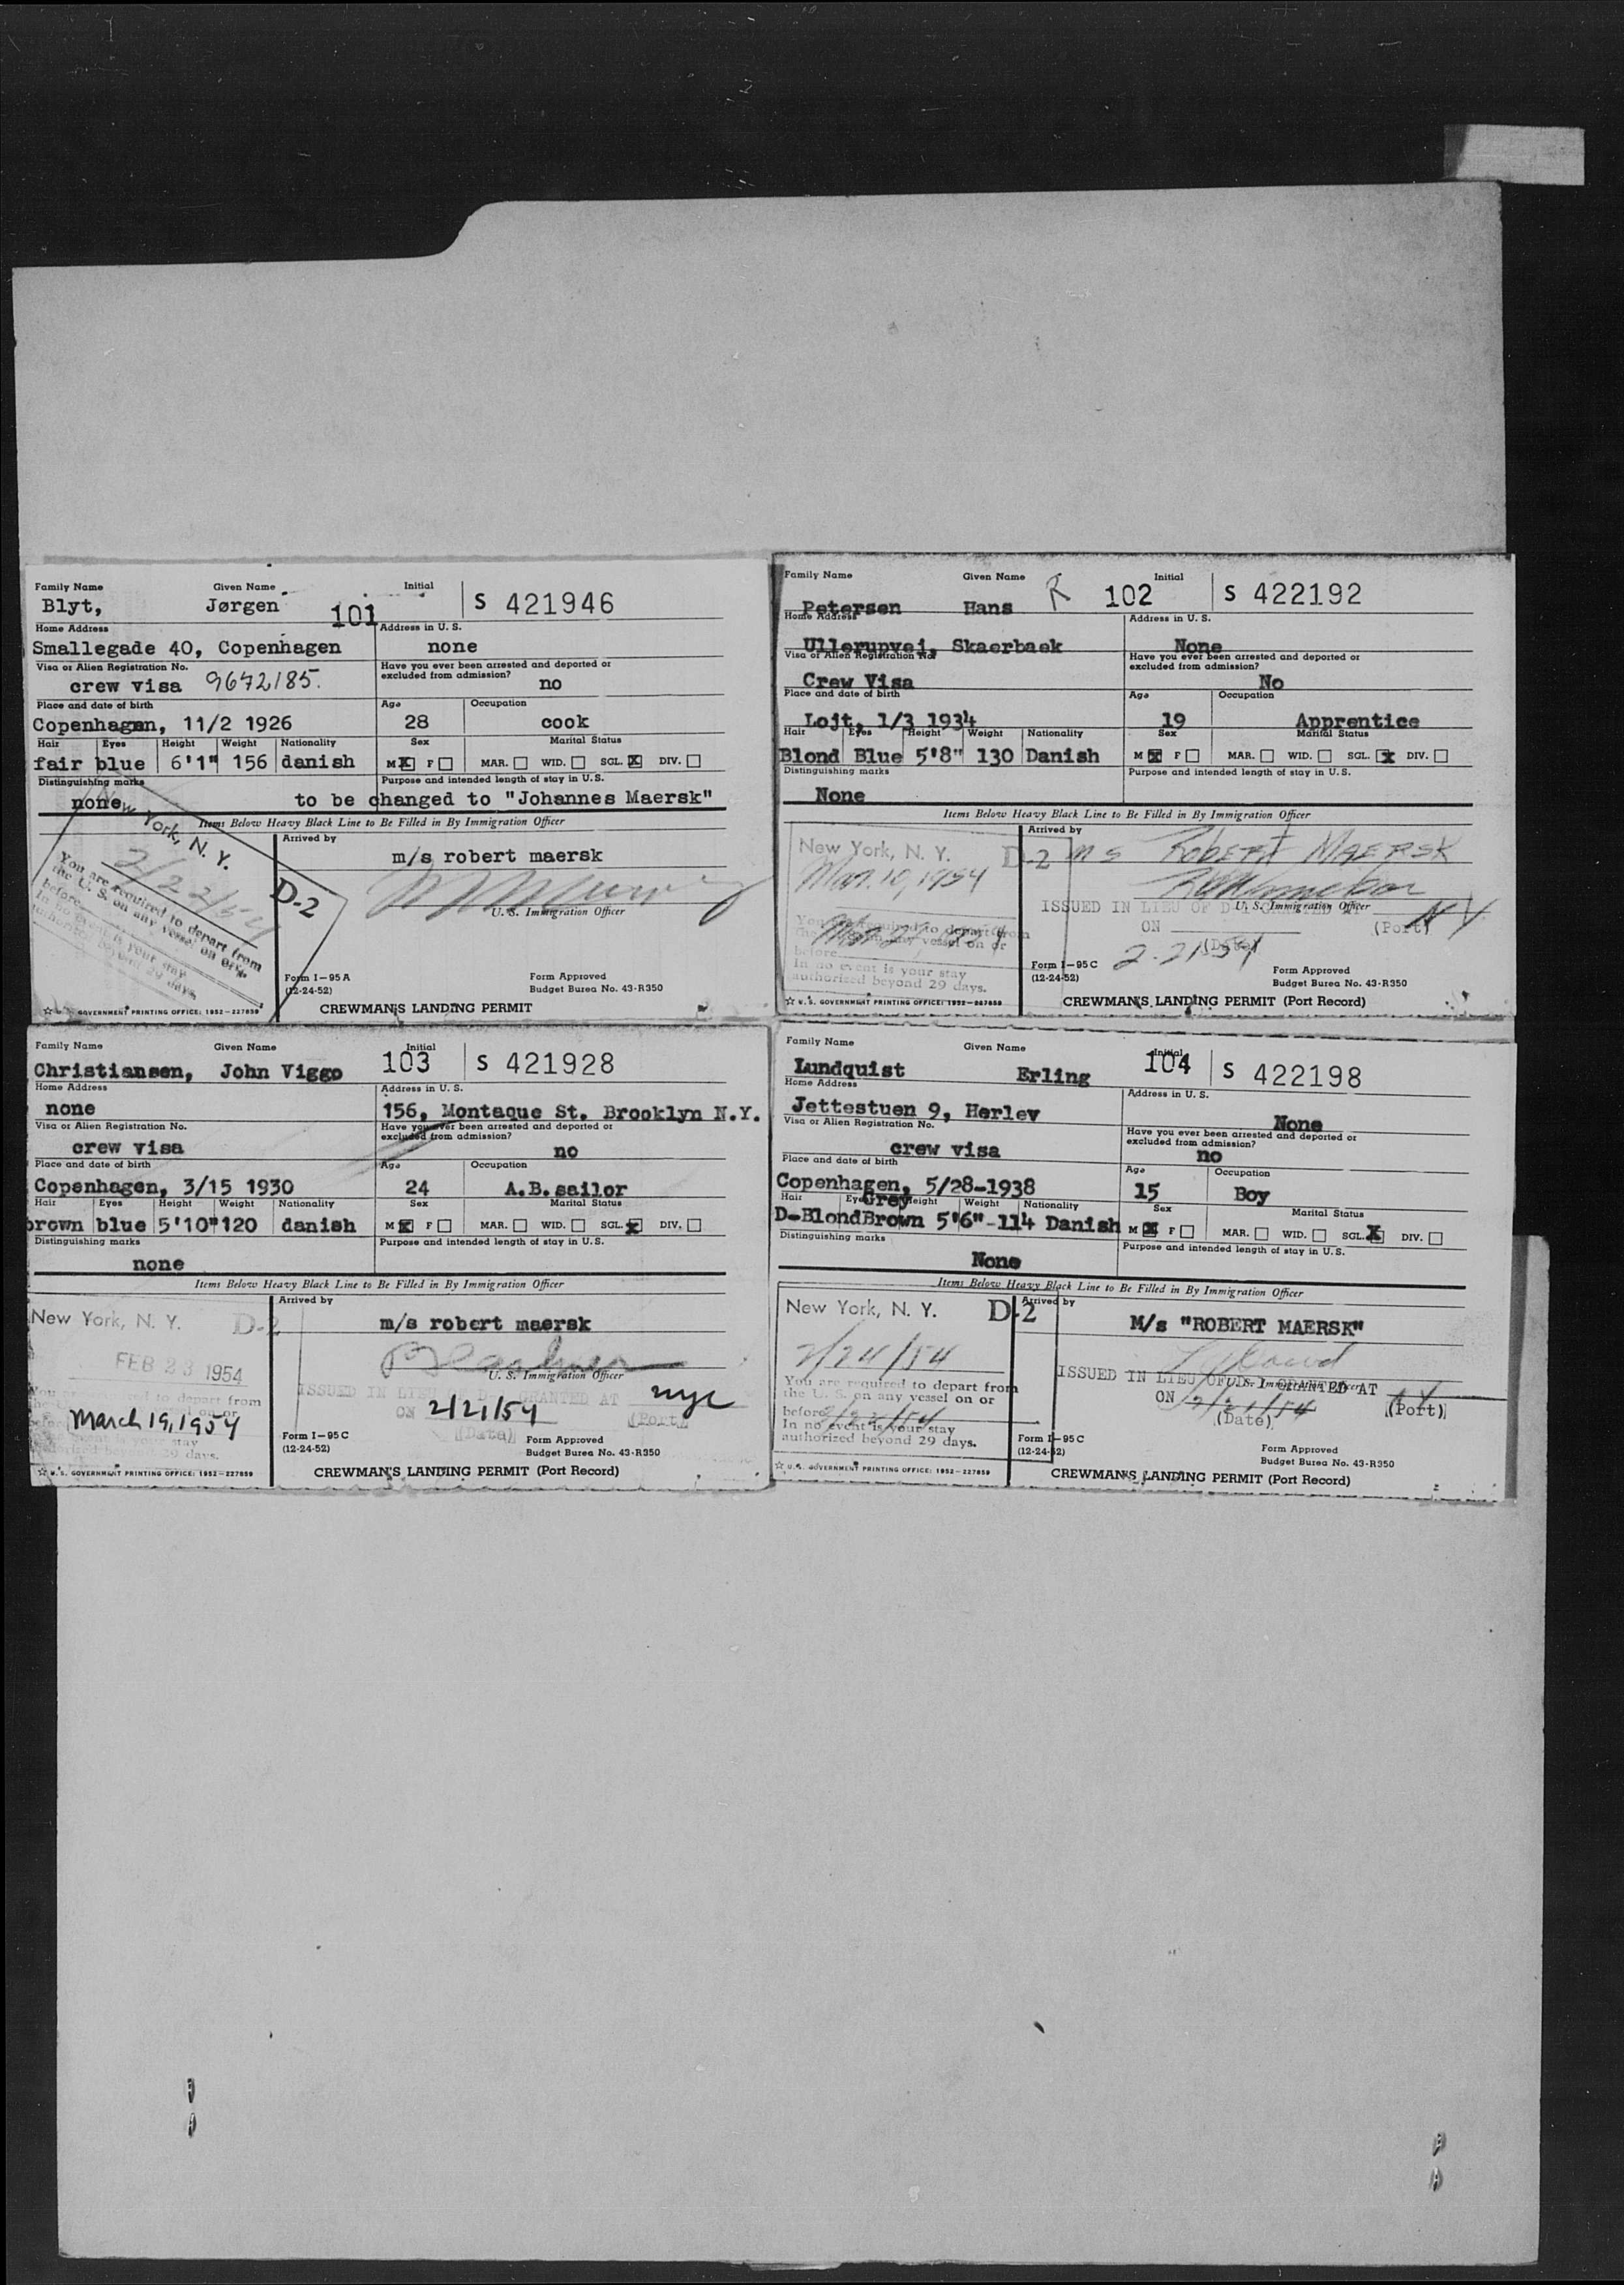 Family Name Given Name Initial
Blyt, Jørgen 101 S 421946
Home Address Address in U. S.
Smallegade 40, Copenhagen none
Visa or Alien Registration No. Have you ever been arrested and deported or excluded from admission?
crew visa 9672185. no
Place and date of birth Age Occupation
Copenhagen, 11/2 1926 28 cook
Hair Eyes Height Weight Nationality Sex Marital Status
fair blue 6'1" 156 danish M X F MAR. WID. SGL. X DIV.
Distinguishing marks Purpose and intended length of stay in U.S.
none to be changed to "Johannes Maersk"
Items Below Heavy Black Line to Be Filled in By Immigration Officer
New York, N. Y.
2/22/54
D-2
You are required to depart from
the U. S. on any vessel on or
before
In no event is your stay
authorized beyond 29 days.
Arrived by
m/s robert maersk
U. S. Immigration Officer
Form I-95 A
(12-24-52)
Form Approved
Budget Burea No. 43-R350
☆ U.S. GOVERNMENT PRINTING OFFICE: 1952-227859
CREWMAN'S LANDING PERMIT
Family Name Given Name Initial
Petersen Hans R 102 S 422192
Home Address Address in U. S.
Ullerupvej, Skaerbaek None
Visa or Alien Registration No. Have you ever been arrested and deported or excluded from admission?
Crew Visa No
Place and date of birth Age Occupation
Lojt, 1/3 1934 19 Apprentice
Hair Eyes Height Weight Nationality Sex Marital Status
Blond Blue 5'8" 130 Danish M X F MAR. WID. SGL. X DIV.
Distinguishing marks Purpose and intended length of stay in U.S.
None
Items Below Heavy Black Line to Be Filled in By Immigration Officer
New York, N. Y. D-2
Mar. 10, 1954
You are required to depart from
the U. S. on any vessel on or
before
In no event is your stay
authorized beyond 29 days.
Arrived by
M S ROBERT MAERSK
U. S. Immigration Officer
ISSUED IN LIEU OF D-1 GRANTED AT N Y
ON 2.21.54 (Date) (Port)
Form I-95 C
(12-24-52)
Form Approved
Budget Burea No. 43-R350
☆ U.S. GOVERNMENT PRINTING OFFICE: 1952-227859
CREWMAN'S LANDING PERMIT (Port Record)
Family Name Given Name Initial
Christiansen, John Viggo 103 S 421928
Home Address Address in U. S.
none 156, Montaque St. Brooklyn N.Y.
Visa or Alien Registration No. Have you ever been arrested and deported or excluded from admission?
crew visa no
Place and date of birth Age Occupation
Copenhagen, 3/15 1930 24 A.B. sailor
Hair Eyes Height Weight Nationality Sex Marital Status
brown blue 5'10" 120 danish M X F MAR. WID. SGL. X DIV.
Distinguishing marks Purpose and intended length of stay in U.S.
none
Items Below Heavy Black Line to Be Filled in By Immigration Officer
New York, N. Y. D-2
FEB 23 1954
March 19, 1954
Arrived by
m/s robert maersk
U. S. Immigration Officer
ISSUED IN LIEU OF D-1 GRANTED AT nyc
ON 2/21/54 (Date) (Port)
Form I-95 C
(12-24-52)
Form Approved
Budget Burea No. 43-R350
☆ U.S. GOVERNMENT PRINTING OFFICE: 1952-227859
CREWMAN'S LANDING PERMIT (Port Record)
Family Name Given Name Initial
Lundquist Erling 104 S 422198
Home Address Address in U. S.
Jettestuen 9, Herlev None
Visa or Alien Registration No. Have you ever been arrested and deported or excluded from admission?
crew visa no
Place and date of birth Age Occupation
Copenhagen, 5/28-1938 15 Boy
Hair Eyes Height Weight Nationality Sex Marital Status
Grey
D-Blond Brown 5'6"-114 Danish M X F MAR. WID. SGL. X DIV.
Distinguishing marks Purpose and intended length of stay in U.S.
None
Items Below Heavy Black Line to Be Filled in By Immigration Officer
New York, N. Y. D-2
2/24/54
You are required to depart from
the U. S. on any vessel on or
before
In no event is your stay
authorized beyond 29 days.
Arrived by
M/s "ROBERT MAERSK"
U. S. Immigration Officer
ISSUED IN LIEU OF D-1 GRANTED AT N Y
ON 2/21/54 (Date) (Port)
Form I-95 C
(12-24-52)
Form Approved
Budget Burea No. 43-R350
☆ U.S. GOVERNMENT PRINTING OFFICE: 1952-227859
CREWMAN'S LANDING PERMIT (Port Record)